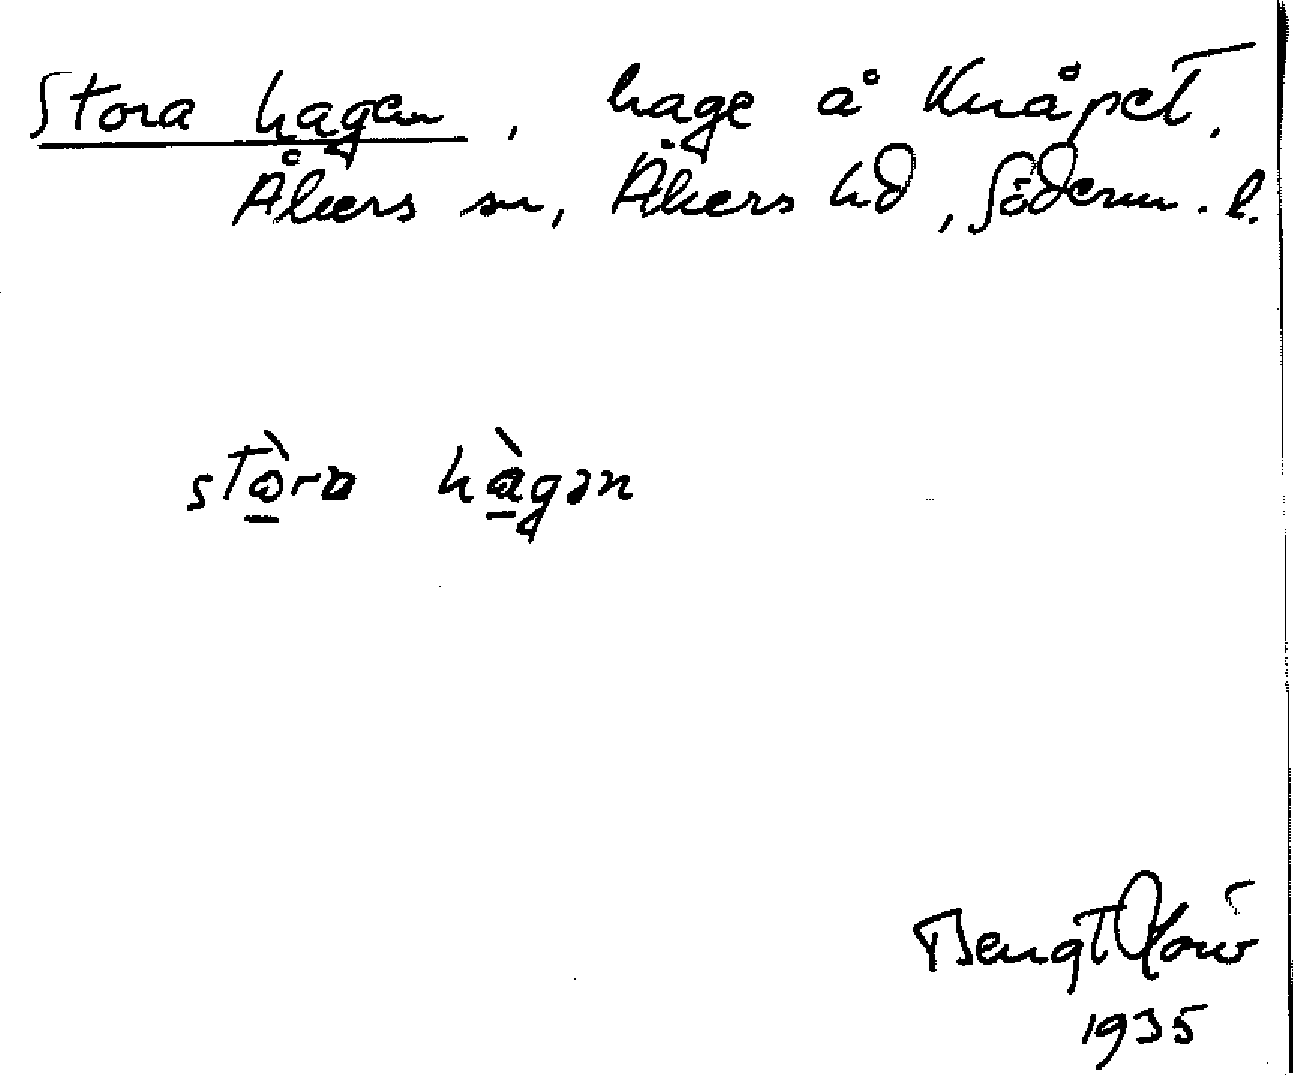 Stora hagen, hage å Knåpet.
Åkers sn, Åkers hd, Söderm. l.
stòra hàgən
Bengt
1935